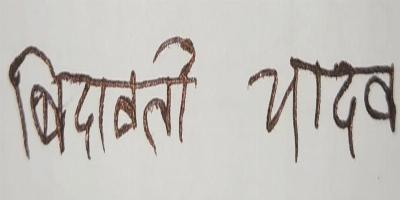 बिदावती यादव